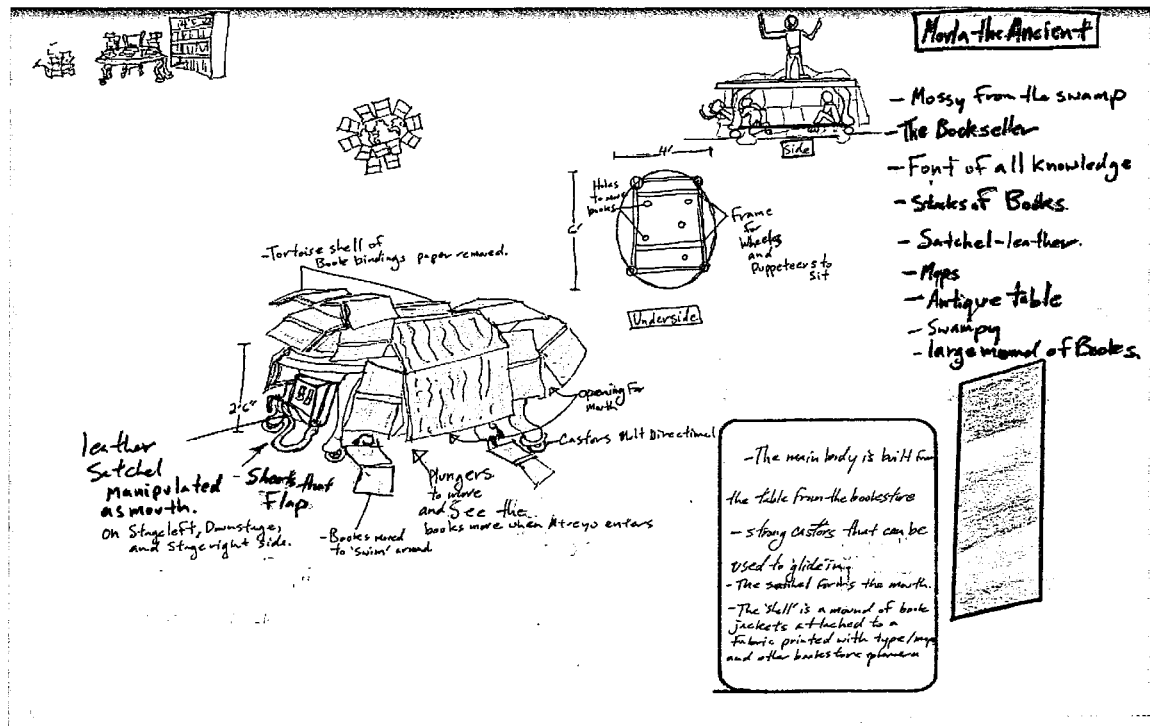 Morla the Ancient
- Mossy from the swamp
- The Bookseller
- Font of all knowledge
- Stacks of Books.
- Satchel-leather.
- Maps
- Antique table
- Swampy
- large mound of Books.
Side
4'
6'
Holes
to move
books
Frame
for
Wheels
and
Puppeteers to
Sit
Underside
- Tortoise shell of
Book bindings paper removed.
2'6"
Opening For
Mouth
Castors Mult Directional
leather
Satchel
manipulated
as mouth.
on Stage left, Downstage,
and Stage right side.
- Sheets that
Flap
Plungers
to move
and See the
books move when Atreyo enters
- Books moved
to 'swim' around
- The main body is built from
the table from the bookstore
- strong castors that can be
used to glide
- The satchel forms the mouth.
- The 'shell' is a mound of book
jackets attached to a
Fabric printed with type/maps
and other bookstore